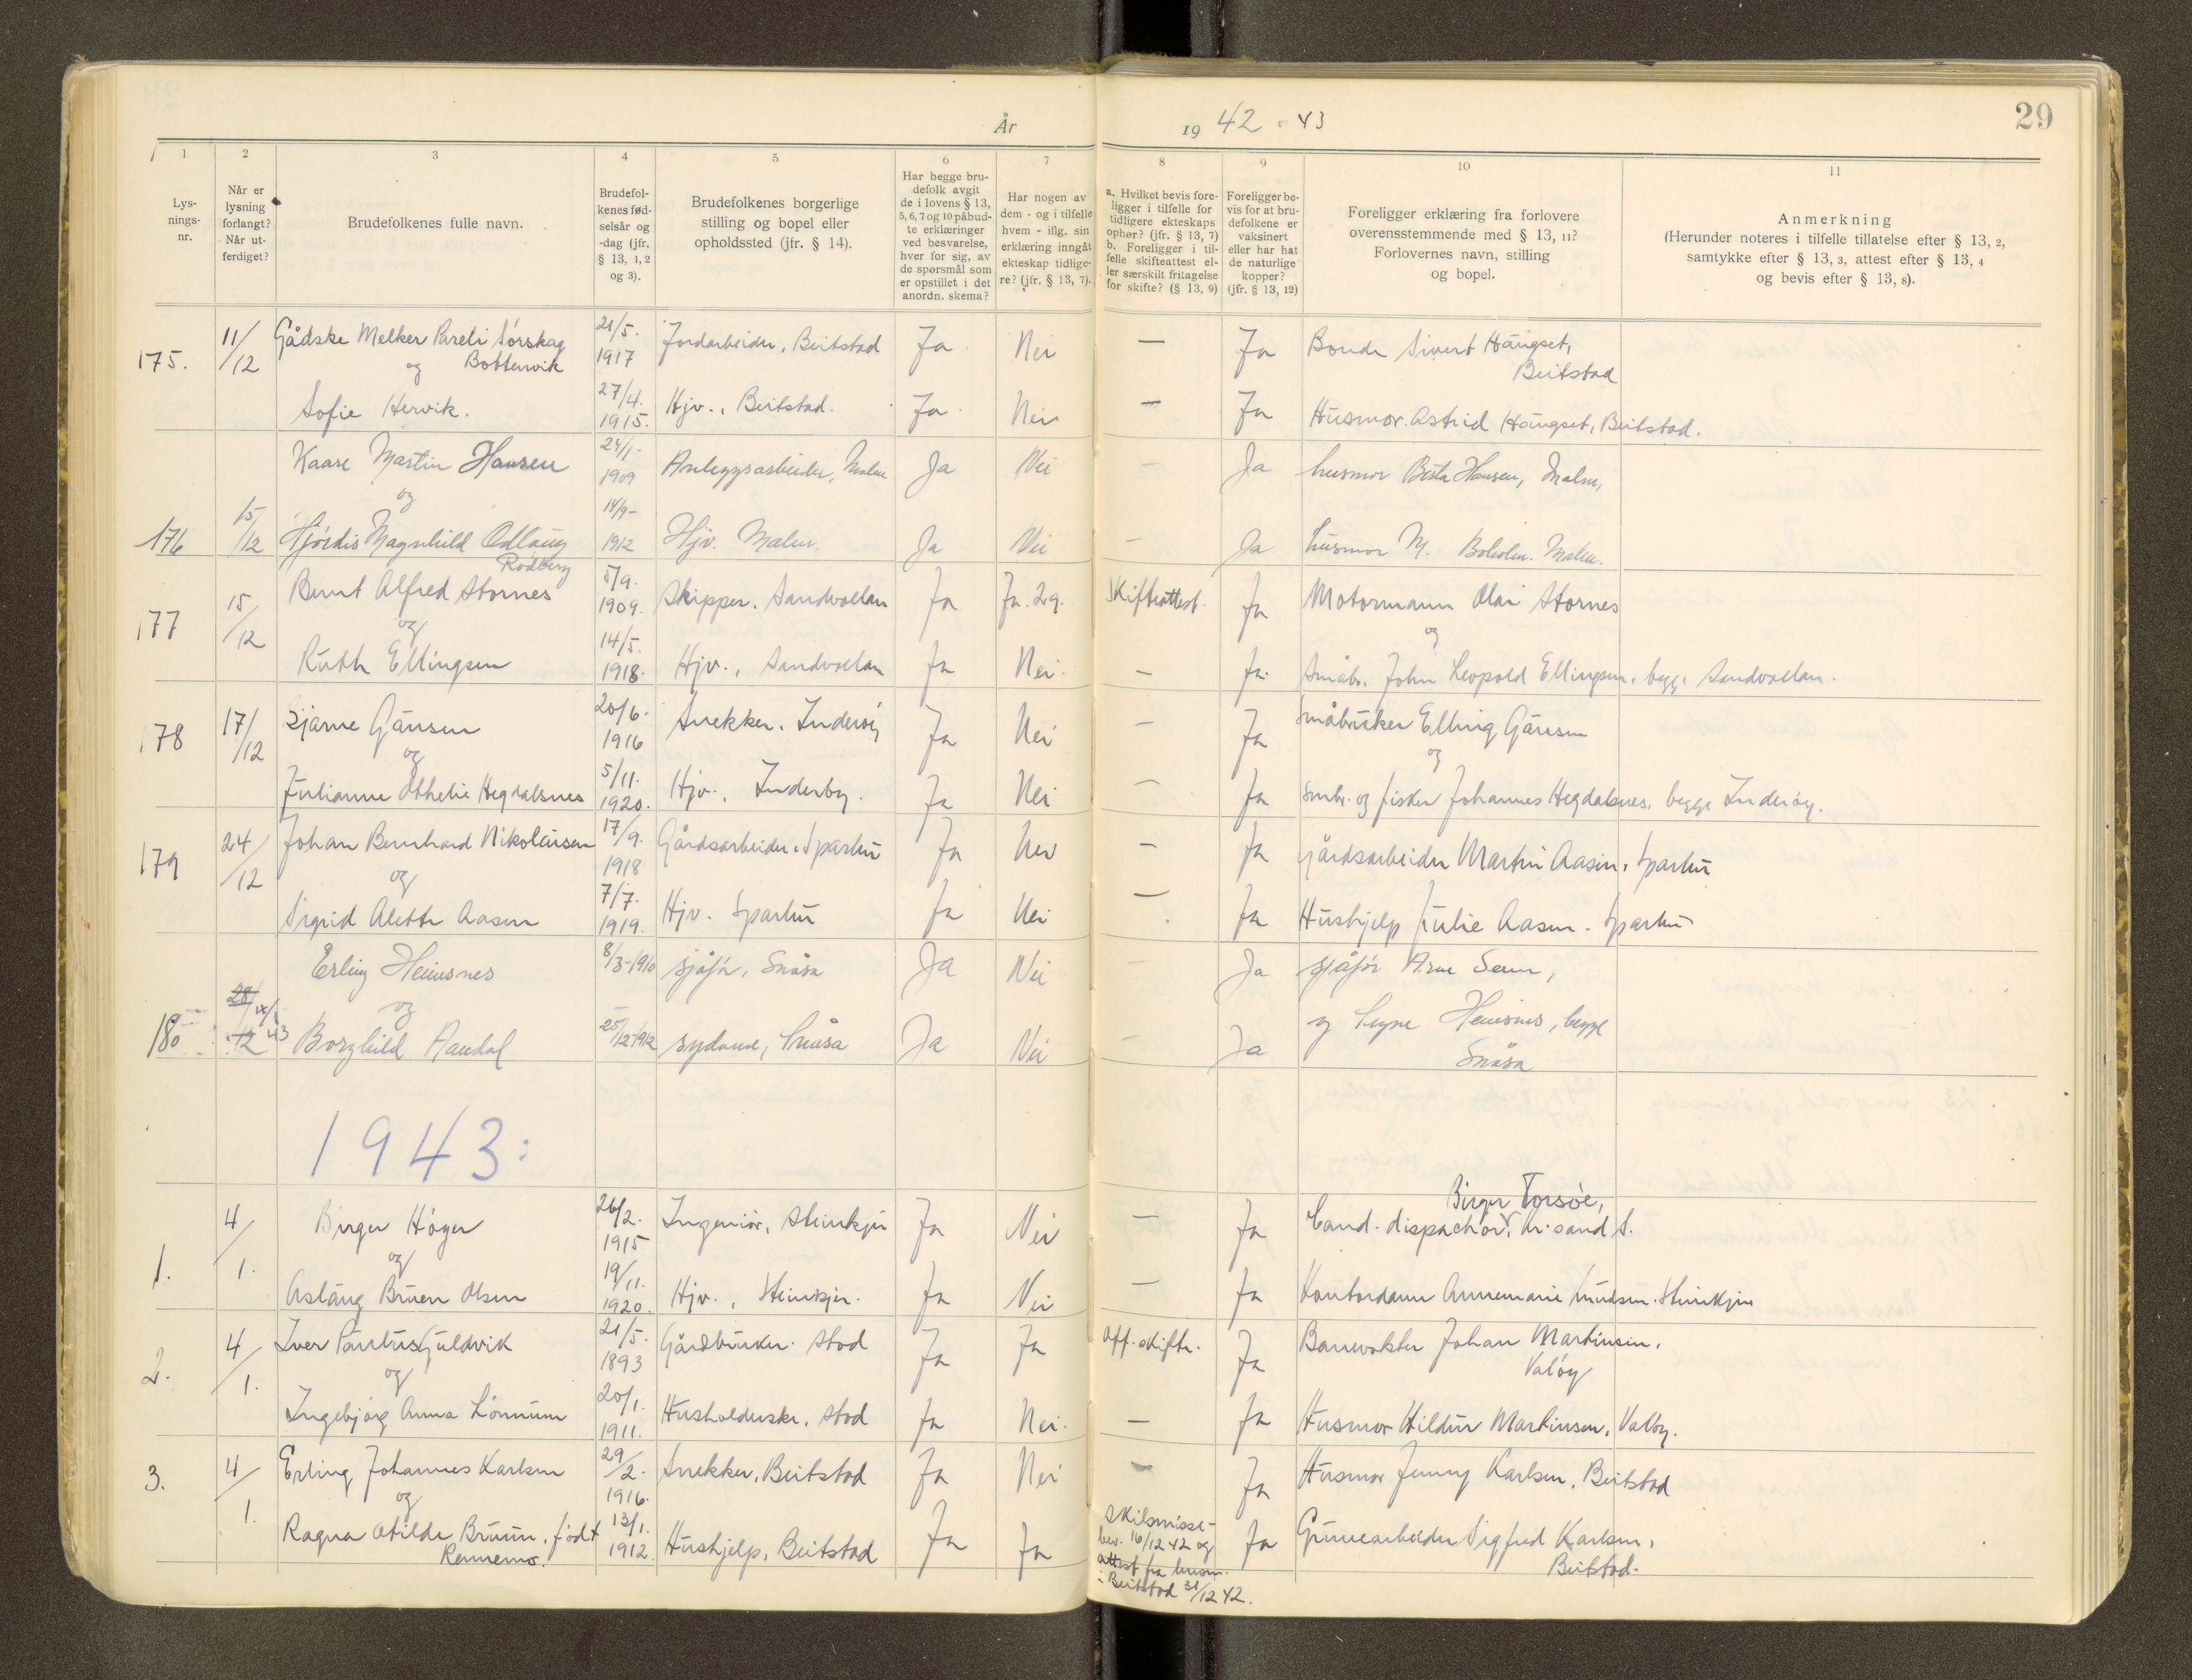 29
År
19 42-43
1
2
3
4
5
6
7
8
9
10
11
Lys-
nings-
nr.
Når er
lysning
forlangt?
Når ut-
ferdiget?
Brudefolkenes fulle navn.
Brudefol-
kenes fød-
selsår og
-dag (jfr.
§ 13, 1, 2
og 3).
Brudefolkenes borgerlige
stilling og bopel eller
opholdssted (jfr. § 14).
Har begge bru-
defolk avgit
de i lovens § 13,
5, 6, 7 og 10 påbud-
te erklæringer
ved besvarelse,
hver for sig, av
de spørsmål som
er opstillet i det
anordn. skema?
Har nogen av
dem - og i tilfelle
hvem - iflg. sin
erklæring inngått
ekteskap tidlige-
re? (jfr. § 13, 7).
a. Hvilket bevis fore-
ligger i tilfelle for
tidligere ekteskaps
ophør? (jfr. § 13, 7)
b. Foreligger i til-
felle skifteattest el-
ler særskilt fritagelse
for skifte? (§ 13, 9)
Foreligger be-
vis for at bru-
defolkene er
vaksinert
eller har hat
de naturlige
kopper?
(jfr. § 13, 12)
Foreligger erklæring fra forlovere
overensstemmende med § 13, 11?
Forlovernes navn, stilling
og bopel.
Anmerkning
(Herunder noteres i tilfelle tillatelse efter § 13, 2,
samtykke efter § 13, 3, attest efter § 13, 4
og bevis efter § 13, 8).
175. 11/12 Gådske Melker Pareli Sørskag 21/5. 1917 Jordarbeider, Beitstad Ja Nei — Ja Bonde Sivert Haugset,
og Bottenvik Beitstad
Sofie Hervik. 27/4. 1915. Hjv., Beitstad. Ja Nei — Ja Husmor Astrid Haugset, Beitstad.
Kaare Martin Hansen 24/1- 1909 Anleggsarbeider, Malm Ja Nei — Ja husmor Berta Hansen, Malm,
og
176 15/12 Hjørdis Magnhild Odlaug 14/9- 1912 Hjv. Malm. Ja Nei — Ja husmor M. Boholm. Malm.
Rødberg
177 15/12 Bernt Alfred Stornes 5/9. 1909. Skipper. Sandvollan Ja Ja. 2 g. Skifteattest. Ja Motormann Olai Stornes
og og
Ruth Ellingsen 14/5. 1918. Hjv., Sandvollan Ja Nei — Ja. Småbr. John Leopold Ellingsen, begge Sandvollan.
178 17/12 Bjarne Gausen 20/6. 1916 Snekker. Inderøy Ja Nei — Ja Småbruker Elling Gausen
og og
Julianne Othelie Hegdalsnes 5/11. 1920. Hjv., Inderøy. Ja Nei — Ja Småbr. og fisker Johannes Hegdalsnes, begge Inderøy.
179 24/12 Johan Bernhard Nikolaisen 17/9. 1918 Gårdsarbeider, Sparbu Ja Nei — Ja Gårdsarbeider Martin Aasen, Sparbu
og
Sigrid Alette Aasen 7/7. 1919. Hjv. Sparbu Ja Nei — Ja Hushjelp Julie Aasen. Sparbu
Erling Heimsnes 8/3-1910 sjåfør, Snåsa Ja Nei — Ja sjåfør Arne Sem,
180 28/12 43 og og Signe Heimsnes, begge
Borghild Aandal 25/12-1912 sydame, Snåsa Ja Nei — Ja Snåsa
1943:
Birger Torsøe,
1. 4/1. Birger Høyer 26/2. 1915 Ingeniør, Steinkjer Ja Nei — Ja Cand. dispachør, Kr.sand S.
og
Aslaug Bruen Olsen 19/11. 1920. Hjv., Steinkjer. Ja Nei — Ja Kontordame Annemarie Knudsen. Steinkjer
2. 4/1. Iver Paulus Guldvik 21/5. 1893 Gårdbruker. Stod Ja Ja Off. skifte. Ja Banevokter Johan Martinsen.
og Valøy
Ingebjørg Anna Lønnum 20/1. 1911. Husholderske, Stod Ja Nei. — Ja Husmor Hildur Martinsen, Valøy.
3. 4/1. Erling Johannes Karlsen 29/2. 1916. Snekker, Beitstad Ja Nei — Ja Husmor Jenny Karlsen, Beitstad
og
Ragna Otilde Bruun, født 13/1. 1912. Hushjelp, Beitstad Ja Ja Skilsmisse- Ja Gruvearbeider Sigfred Karlsen,
Rennemo. bev. 16/12 42 og Beitstad.
attest fra lensm.
i Beitstad 31/12 42.